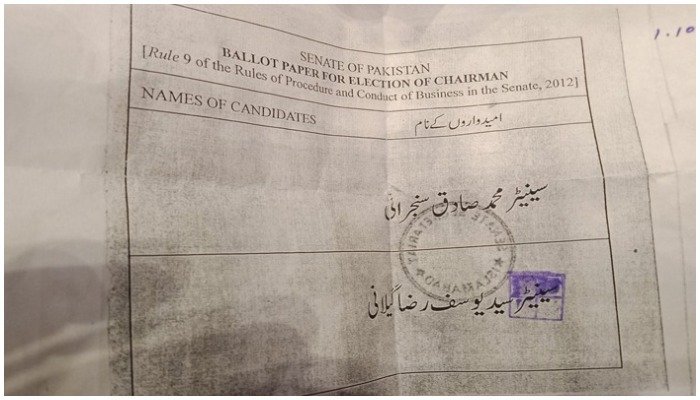 1.10
SENATE OF PAKISTAN
BALLOT PAPER FOR ELECTION OF CHAIRMAN
[Rule 9 of the Rules of Procedure and Conduct of Business in the Senate, 2012]
NAMES OF CANDIDATES امیدواروں کے نام
سینیٹر محمد صادق سنجرانی
SENATE SECRETARIAT
ISLAMABAD
سینیٹر سید یوسف رضا گیلانی